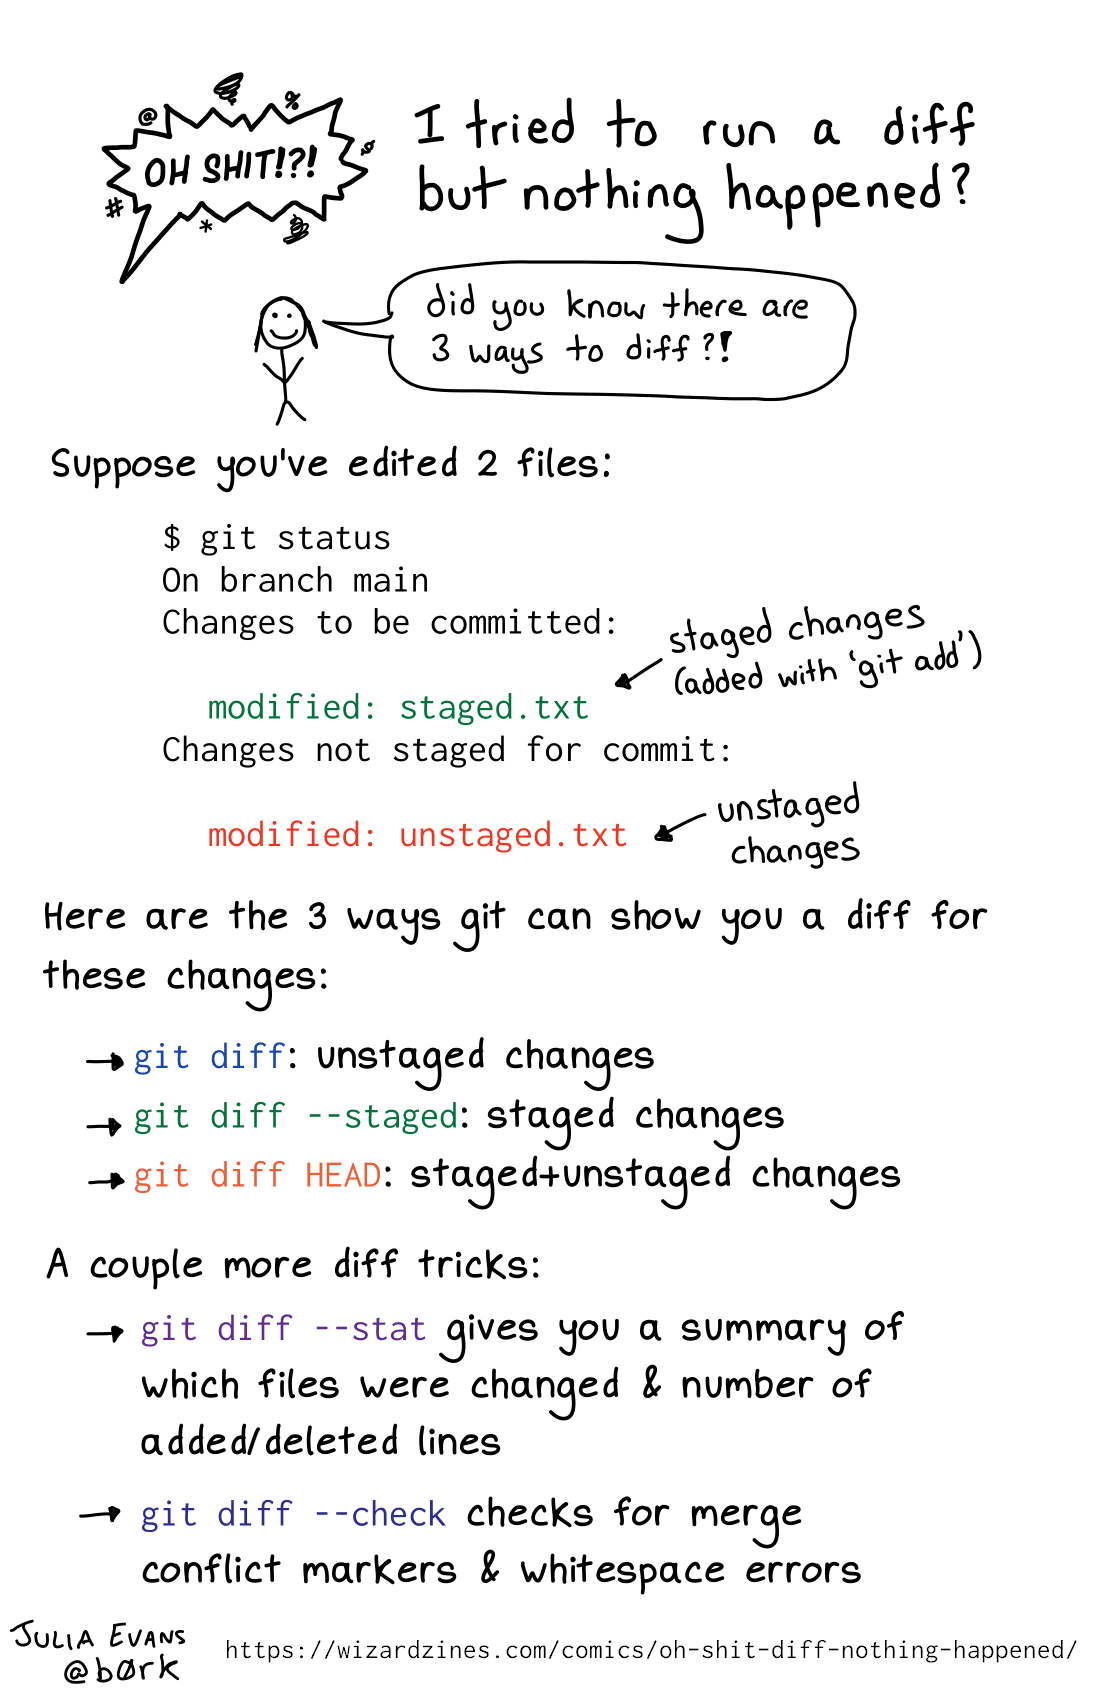 OH SHIT!?!
I tried to run a diff
but nothing happened?
did you know there are
3 ways to diff?!
Suppose you've edited 2 files:
$ git status
On branch main
Changes to be committed:
staged changes
(added with 'git add')
modified: staged.txt
Changes not staged for commit:
unstaged
changes
modified: unstaged.txt
Here are the 3 ways git can show you a diff for
these changes:
→ git diff: unstaged changes
→ git diff --staged: staged changes
→ git diff HEAD: staged+unstaged changes
A couple more diff tricks:
→ git diff --stat gives you a summary of
which files were changed & number of
added/deleted lines
→ git diff --check checks for merge
conflict markers & whitespace errors
JULIA EVANS
@børk
https://wizardzines.com/comics/oh-shit-diff-nothing-happened/